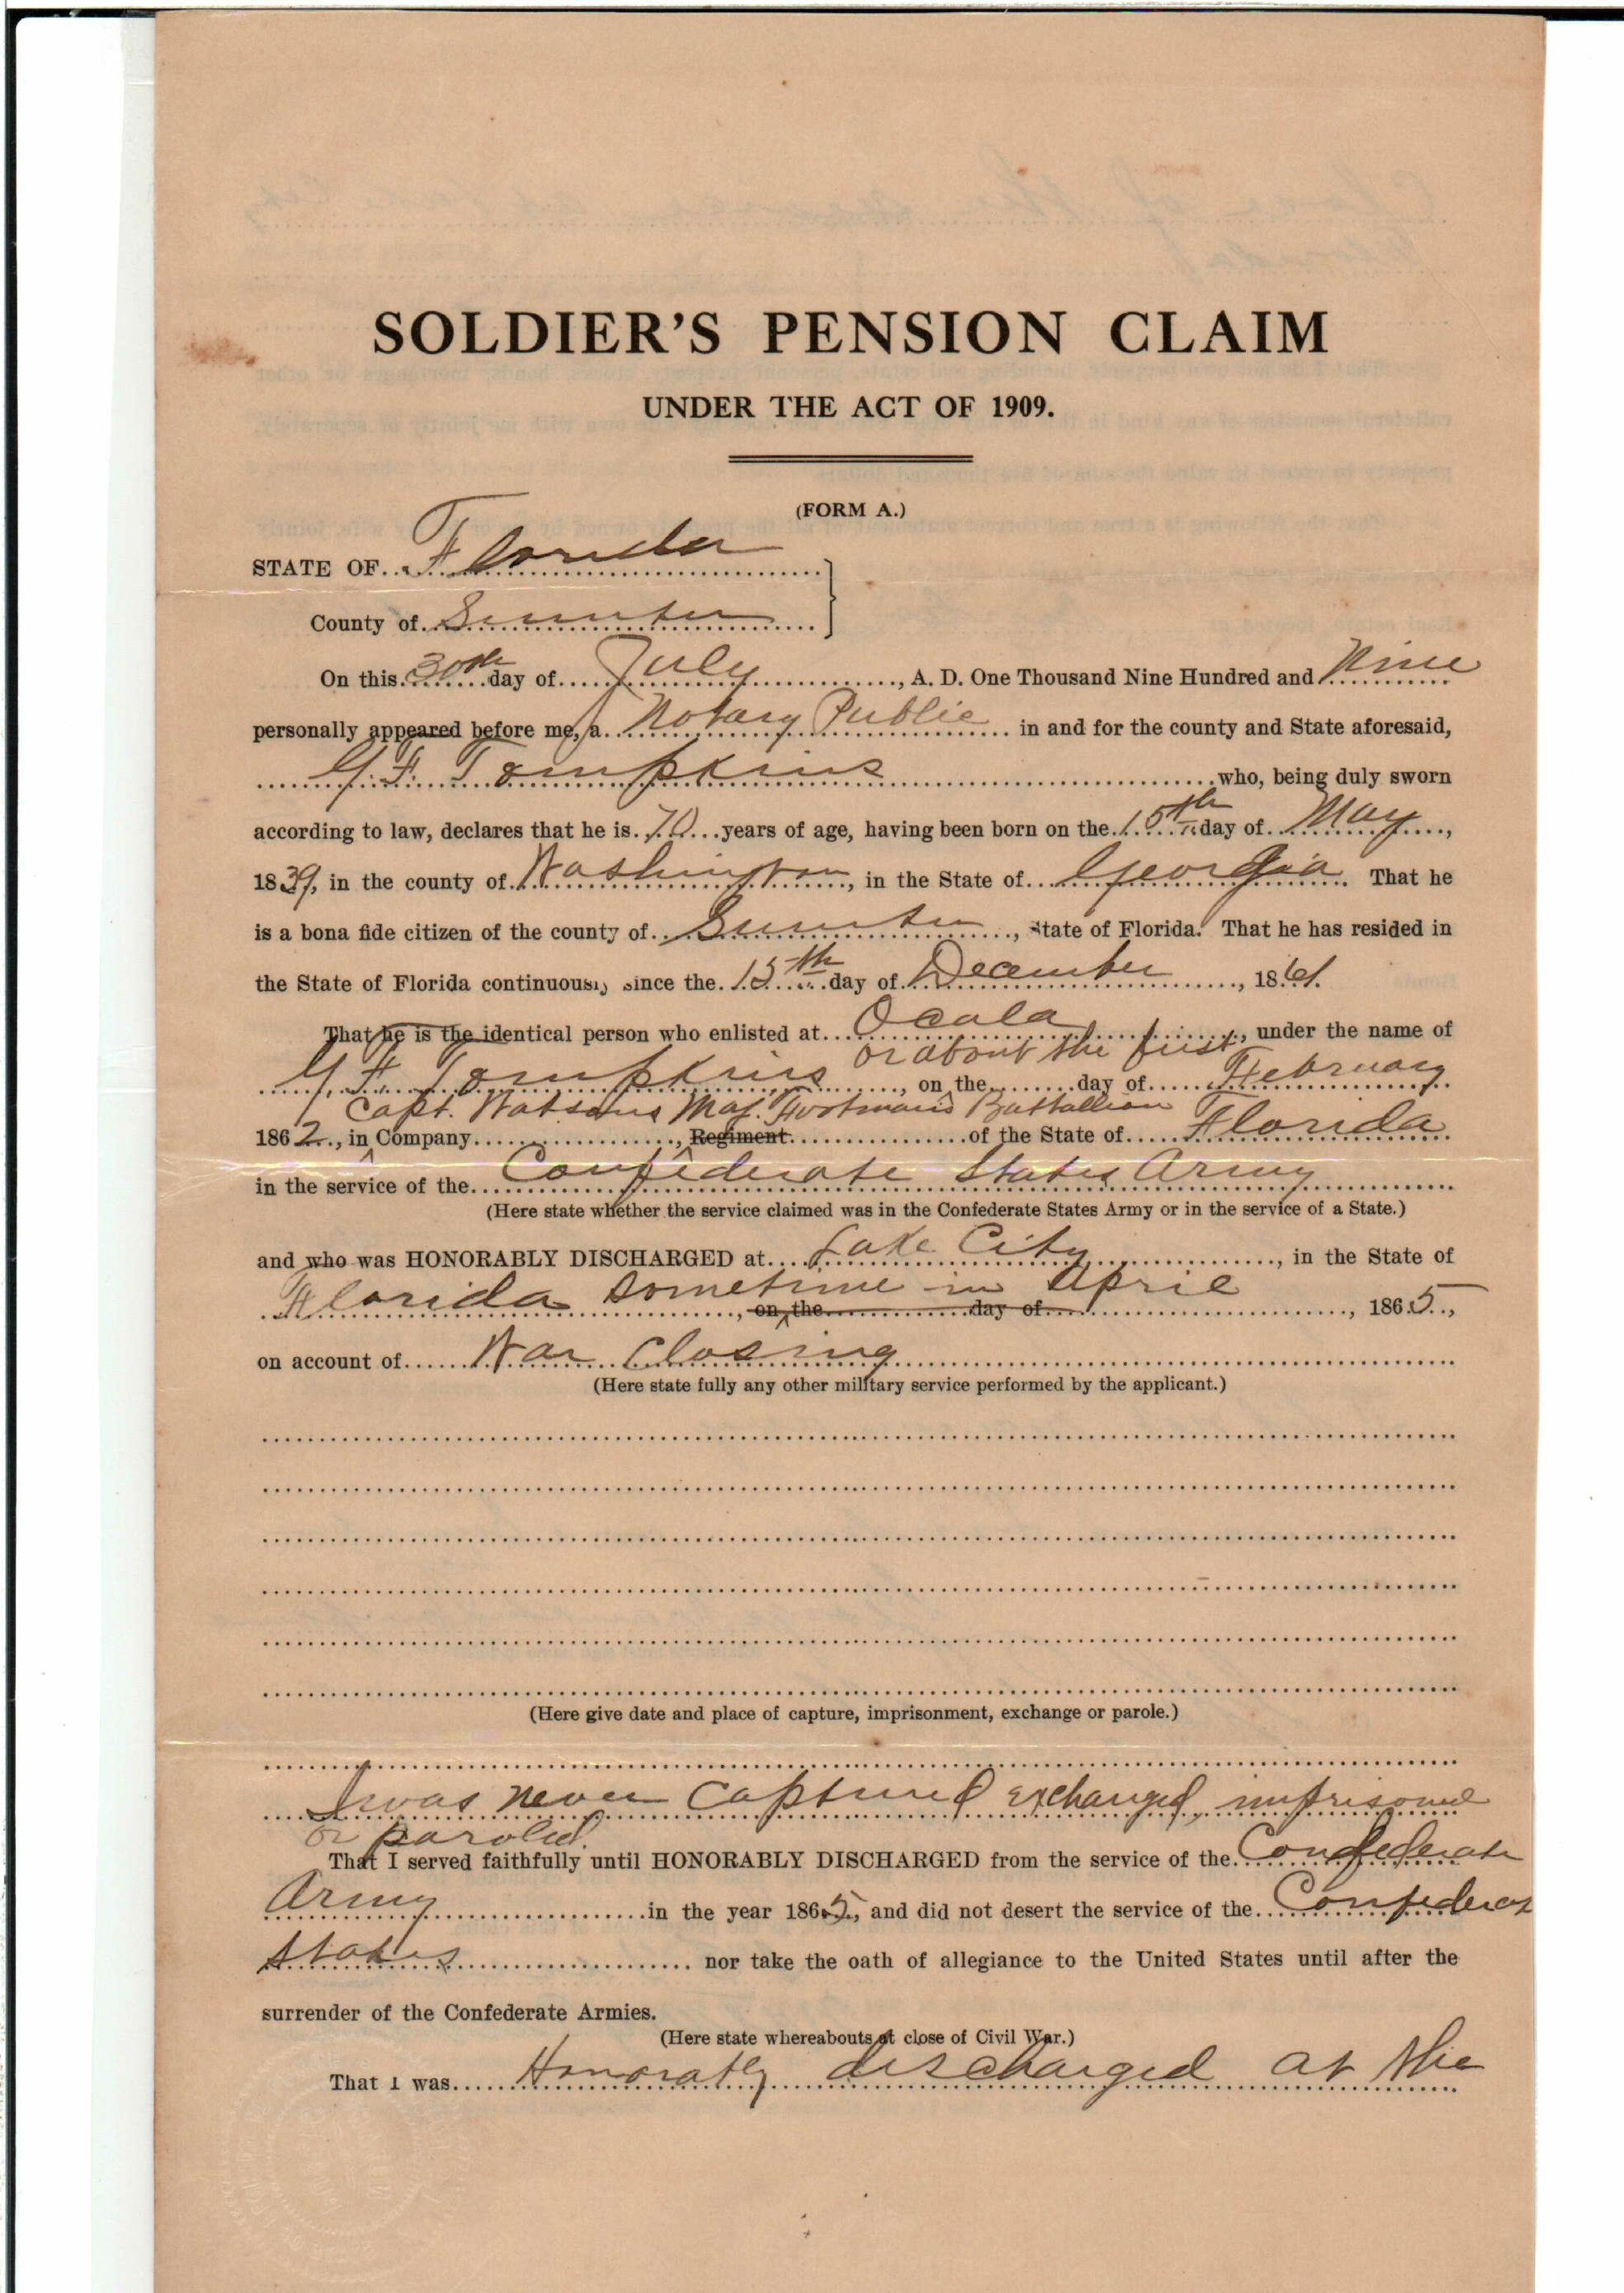 SOLDIER'S PENSION CLAIM
UNDER THE ACT OF 1909.
(FORM A.)
STATE OF Florida
County of Sumter
On this 30th day of July, A. D. One Thousand Nine Hundred and Nine
personally appeared before me, a Notary Public in and for the county and State aforesaid,
G. F. Tompkins who, being duly sworn
according to law, declares that he is 70 years of age, having been born on the 15th day of May,
1839, in the county of Washington, in the State of Georgia. That he
is a bona fide citizen of the county of Sumter, State of Florida. That he has resided in
the State of Florida continuously since the 15th day of December, 1861.
That he is the identical person who enlisted at Ocala, under the name of
or about the first
G. F. Tompkins, on the day of February
Capt. Watsons Maj. Footman's Battallion
1862, in Company, Regiment of the State of Florida
in the service of the Confederate States Army
(Here state whether the service claimed was in the Confederate States Army or in the service of a State.)
and who was HONORABLY DISCHARGED at Lake City, in the State of
Florida sometime in April, on the day of, 1865,
on account of War Closing
(Here state fully any other military service performed by the applicant.)
(Here give date and place of capture, imprisonment, exchange or parole.)
I was never captured exchanged, imprisoned
or paroled.
That I served faithfully until HONORABLY DISCHARGED from the service of the Confederate
Army in the year 1865, and did not desert the service of the Confederat
States nor take the oath of allegiance to the United States until after the
surrender of the Confederate Armies.
(Here state whereabouts at close of Civil War.)
That I was Honorably discharged at the